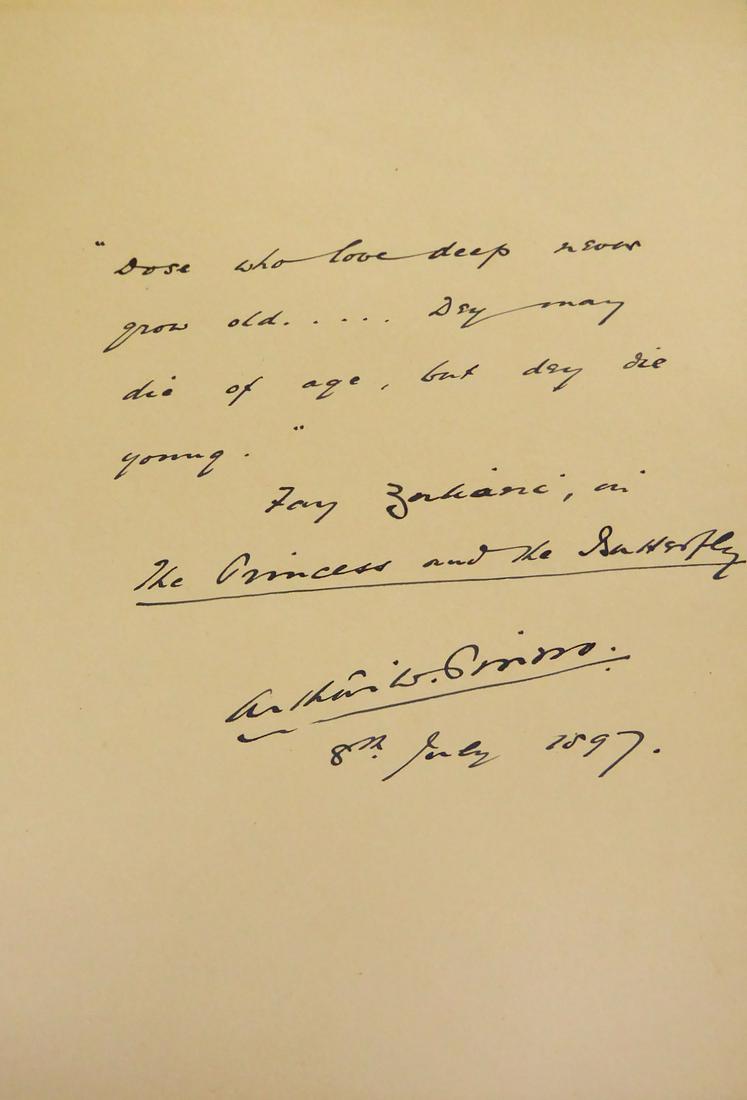 "Dose who love deep never
grow old..... Dey may
die of age, but dey die
young."
Fay Zuliani, in
The Princess and the Butterfly
Arthur W. Pinero.
8th July 1897.